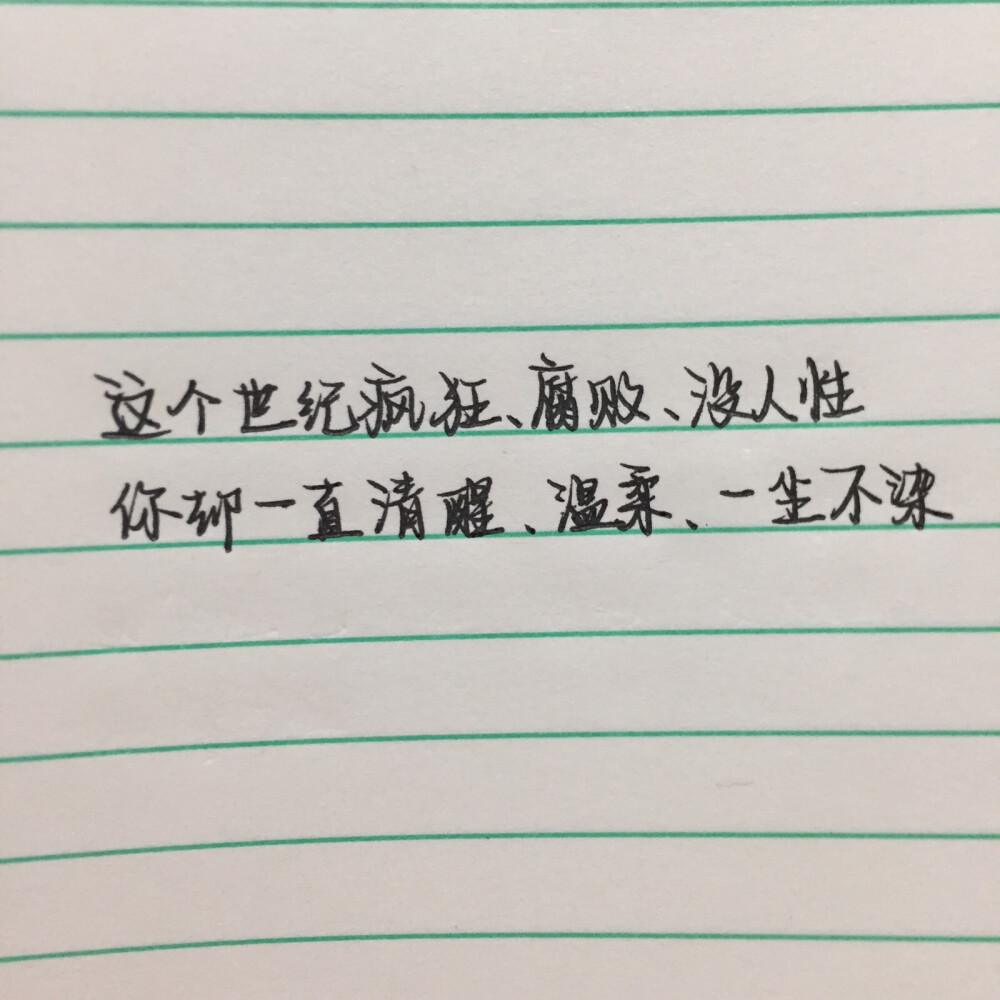 这个世纪疯狂、腐败、没人性
你却一直清醒、温柔、一尘不染